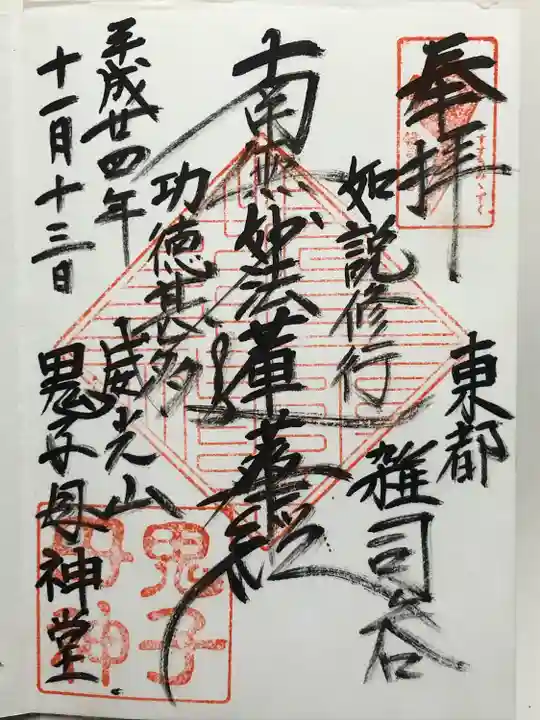 奉拝
東都
雑司谷
如説修行
南無妙法蓮華経
功徳甚多
威光山
鬼子母神堂
平成廿四年
十一月十三日
鬼子
母神